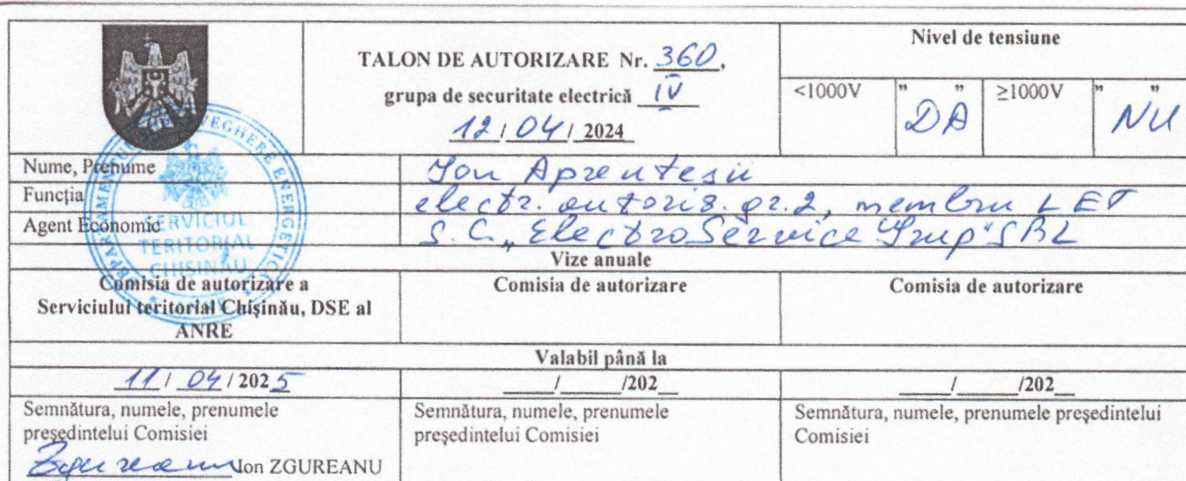 TALON DE AUTORIZARE Nr. 360,
grupa de securitate electrică IV
12 / 04 / 2024
Nivel de tensiune
<1000V "DA" ≥1000V "NU"
Nume, Prenume Ion Aprentesii
Funcția electr. autoris. gr.2, membru LET
Agent Economic S.C. „ElectroService Grup" SRL
SERVICIUL
TERITORIAL
CHIȘINĂU
Vize anuale
Comisia de autorizare a
Serviciului teritorial Chișinău, DSE al
ANRE
Comisia de autorizare
Comisia de autorizare
Valabil până la
11 / 04 / 2025
___/___/202_
___/___/202_
Semnătura, numele, prenumele
președintelui Comisiei
Zgureanu Ion ZGUREANU
Semnătura, numele, prenumele
președintelui Comisiei
Semnătura, numele, prenumele președintelui
Comisiei